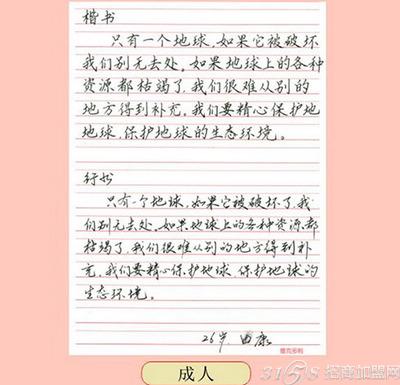 楷书
只有一个地球,如果它被破坏
我们别无去处。如果地球上的各种
资源都枯竭了,我们很难从别的
地方得到补充。我们要精心保护地
地球,保护地球的生态环境。
行书
只有一个地球,如果它被破坏了,我
们别无去处。如果地球上的各种资源都
枯竭了,我们很难从别的地方得到补
充,我们要精心保护地球,保护地球的
生态环境。
26岁 曲康
成人
3158招商加盟网